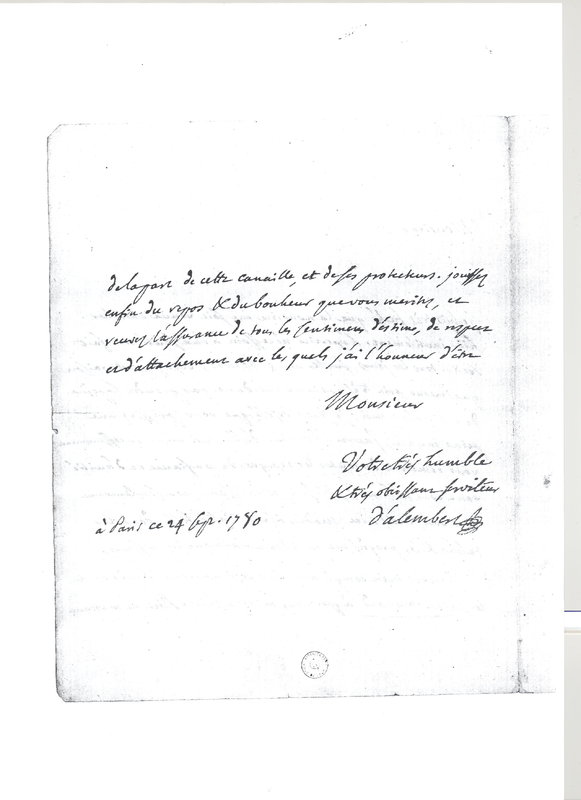 de la part de cette canaille, et de ses protecteurs. jouissez
enfin du repos & du bonheur que vous meritez, et
recevez l'assurance de tous les sentimens d'estime, de respect
et d'attachement avec les quels j'ai l'honneur d'être
Monsieur
Votre très humble
& très obeissant serviteur
d'alembert
à Paris ce 24 sept. 1780